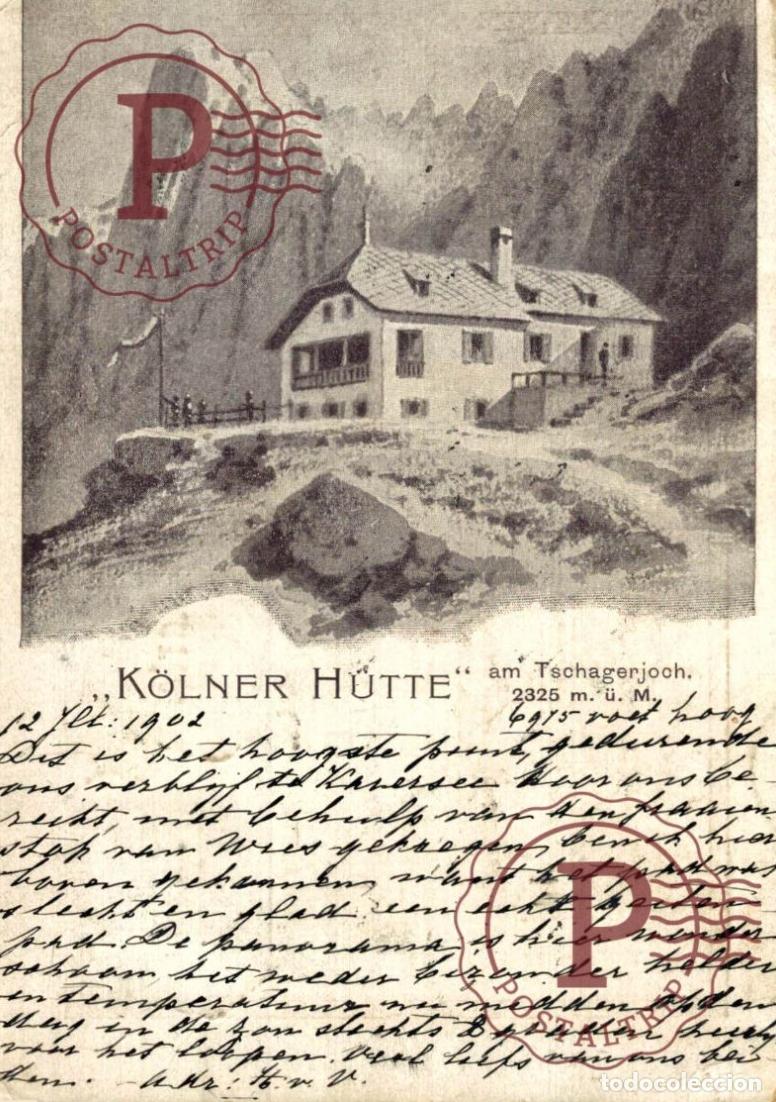 P
POSTALTRIP
„KÖLNER HÜTTE“ am Tschagerjoch.
2325 m. ü. M.
12 1902 6975 voet hoog
Dit is het hoogste punt, gedurende
ons verblijf te Karersee door ons be-
reikt, met behulp van den fraaien
stok van Wies gekregen, ben ik hier
boven gekomen, want het pad was
slecht en glad een echt geiten
pad. De panorama is hier wonder
schoon het weder bezonder helder
en temperatuur nu midden op den
dag in de zon slechts graden
voor het loopen. Veel liefs van ons bei-
den. adr: H. v. V.
P
POSTALTRIP
todocoleccion